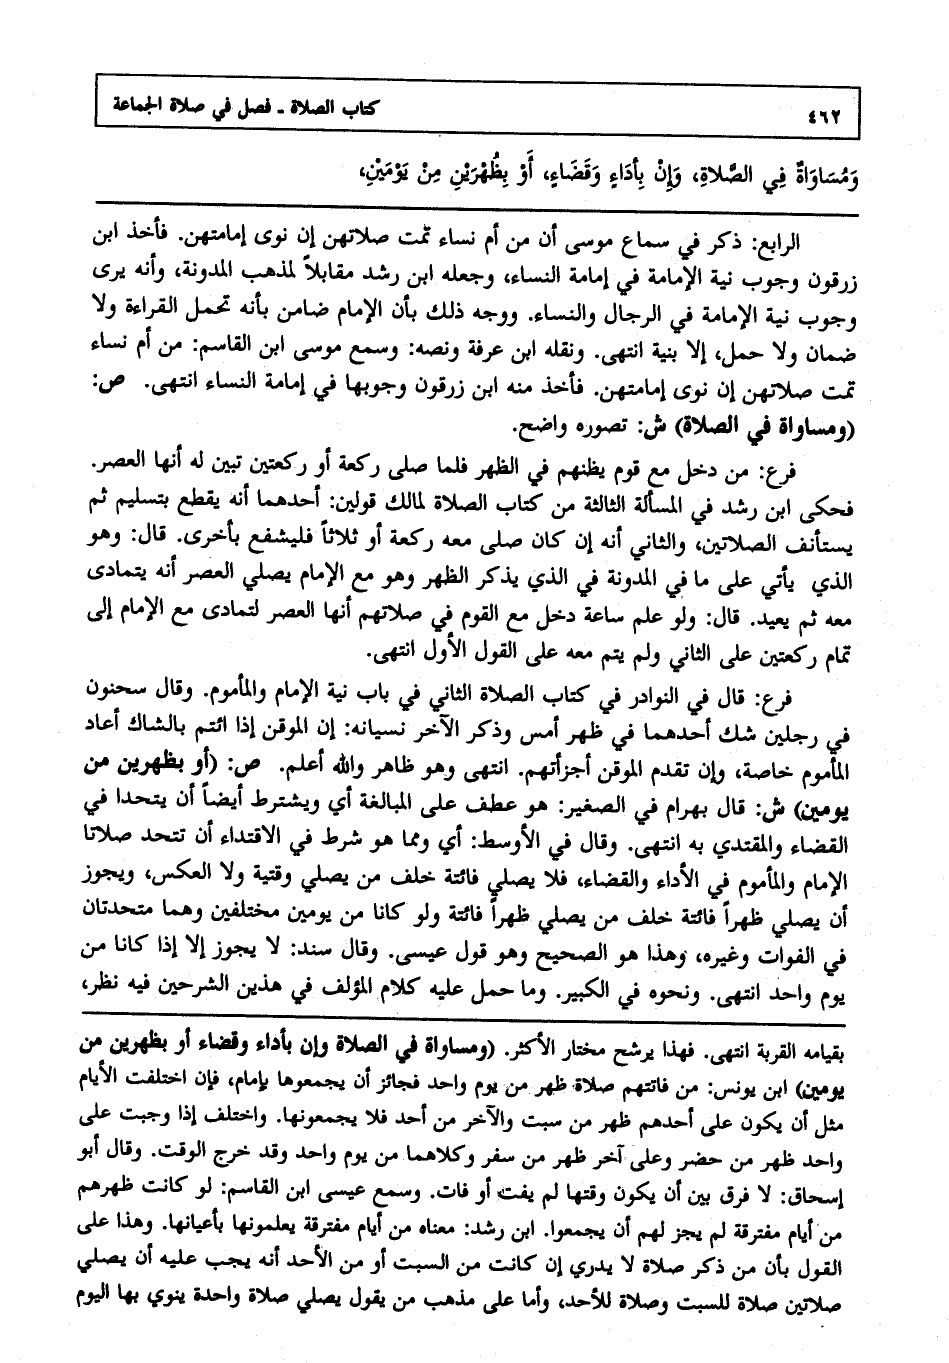 ٤٦٢
كتاب الصلاة ـ فصل في صلاة الجماعة
وَمُسَاوَاةٌ فِي الصَّلَاةِ، وَإِنْ بِأَدَاءٍ وَقَضَاءٍ، أَوْ بِظُهْرَيْنِ مِنْ يَوْمَيْنِ،
الرابع: ذكر في سماع موسى أن من أم نساء تمت صلاتهن إن نوى إمامتهن. فأخذ ابن
زرقون وجوب نية الإمامة في إمامة النساء، وجعله ابن رشد مقابلاً لمذهب المدونة، وأنه يرى
وجوب نية الإمامة في الرجال والنساء. ووجه ذلك بأن الإمام ضامن بأنه تحمل القراءة ولا
ضمان ولا حمل، إلا بنية انتهى. ونقله ابن عرفة ونصه: وسمع موسى ابن القاسم: من أم نساء
تمت صلاتهن إن نوى إمامتهن. فأخذ منه ابن زرقون وجوبها في إمامة النساء انتهى. ص:
(ومساواة في الصلاة) ش: تصوره واضح.
فرع: من دخل مع قوم يظنهم في الظهر فلما صلى ركعة أو ركعتين تبين له أنها العصر.
فحكى ابن رشد في المسألة الثالثة من كتاب الصلاة لمالك قولين: أحدهما أنه يقطع بتسليم ثم
يستأنف الصلاتين، والثاني أنه إن كان صلى معه ركعة أو ثلاثاً فليشفع بأخرى. قال: وهو
الذي يأتي على ما في المدونة في الذي يذكر الظهر وهو مع الإمام يصلي العصر أنه يتمادى
معه ثم يعيد. قال: ولو علم ساعة دخل مع القوم في صلاتهم أنها العصر لتمادى مع الإمام إلى
تمام ركعتين على الثاني ولم يتم معه على القول الأول انتهى.
فرع: قال في النوادر في كتاب الصلاة الثاني في باب نية الإمام والمأموم. وقال سحنون
في رجلين شك أحدهما في ظهر أمس وذكر الآخر نسيانه: إن الموقن إذا ائتم بالشاك أعاد
المأموم خاصة، وإن تقدم الموقن أجزأتهم. انتهى وهو ظاهر والله أعلم. ص: (أو بظهرين من
يومين) ش: قال بهرام في الصغير: هو عطف على المبالغة أي ويشترط أيضاً أن يتحدا في
القضاء والمقتدي به انتهى. وقال في الأوسط: أي ومما هو شرط في الاقتداء أن تتحد صلاتا
الإمام والمأموم في الأداء والقضاء، فلا يصلي فائتة خلف من يصلي وقتية ولا العكس، ويجوز
أن يصلي ظهراً فائتة خلف من يصلي ظهراً فائتة ولو كانا من يومين مختلفين وهما متحدتان
في الفوات وغيره، وهذا هو الصحيح وهو قول عيسى. وقال سند: لا يجوز إلا إذا كانا من
يوم واحد انتهى. ونحوه في الكبير. وما حمل عليه كلام المؤلف في هذين الشرحين فيه نظر،
بقيامه القربة انتهى. فهذا يرشح مختار الأكثر. (ومساواة في الصلاة وإن بأداء وقضاء أو بظهرين من
يومين) ابن يونس: من فاتتهم صلاة ظهر من يوم واحد فجائز أن يجمعوها بإمام، فإن اختلفت الأيام
مثل أن يكون على أحدهم ظهر من سبت والآخر من أحد فلا يجمعونها. واختلف إذا وجبت على
واحد ظهر من حضر وعلى آخر ظهر من سفر وكلاهما من يوم واحد وقد خرج الوقت. وقال أبو
إسحاق: لا فرق بين أن يكون وقتها لم يفت أو فات. وسمع عيسى ابن القاسم: لو كانت ظهرهم
من أيام مفترقة لم يجز لهم أن يجمعوا. ابن رشد: معناه من أيام مفترقة يعلمونها بأعيانها. وهذا على
القول بأن من ذكر صلاة لا يدري إن كانت من السبت أو من الأحد أنه يجب عليه أن يصلي
صلاتين صلاة للسبت وصلاة للأحد، وأما على مذهب من يقول يصلي صلاة واحدة ينوي بها اليوم